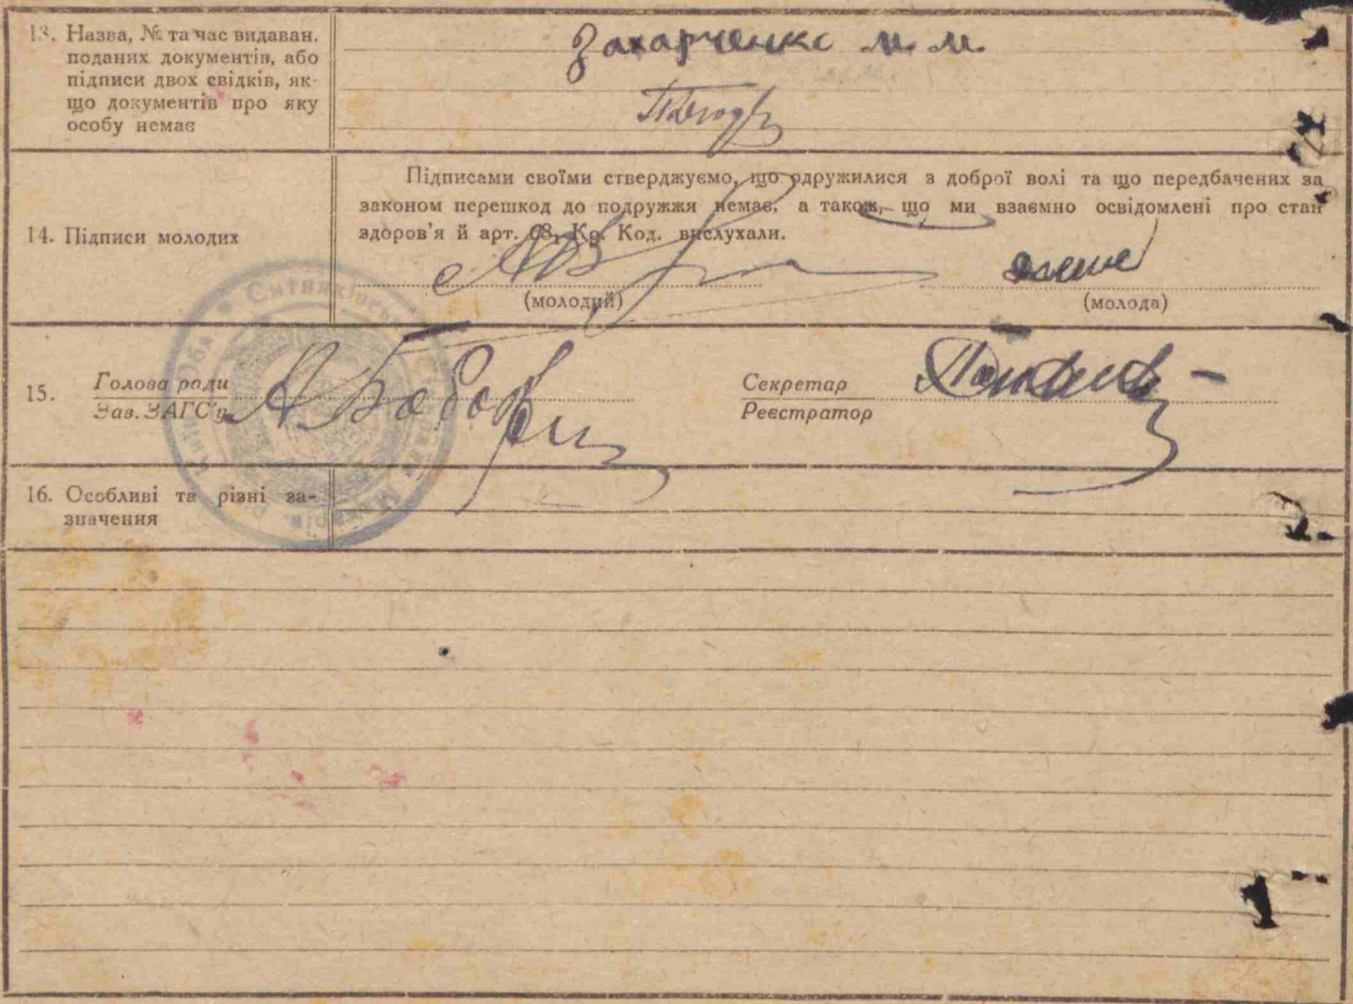 13. Назва, № та час видаван.
поданих документів, або
підписи двох свідків, як-
що документів про яку
особу немає
Захарченко М. М.
14. Підписи молодих
Підписами своїми стверджуємо, що одружилися з доброї волі та що передбачених за
законом перешкод до подружжя немає, а також, що ми взаємно освідомлені про стан
здоров'я й арт. 68, Кр. Код. вислухали.
(молодий)
(молода)
15. Голова ради
Зав. ЗАГС'у
Секретар
Реєстратор
16. Особливі та різні за-
значення